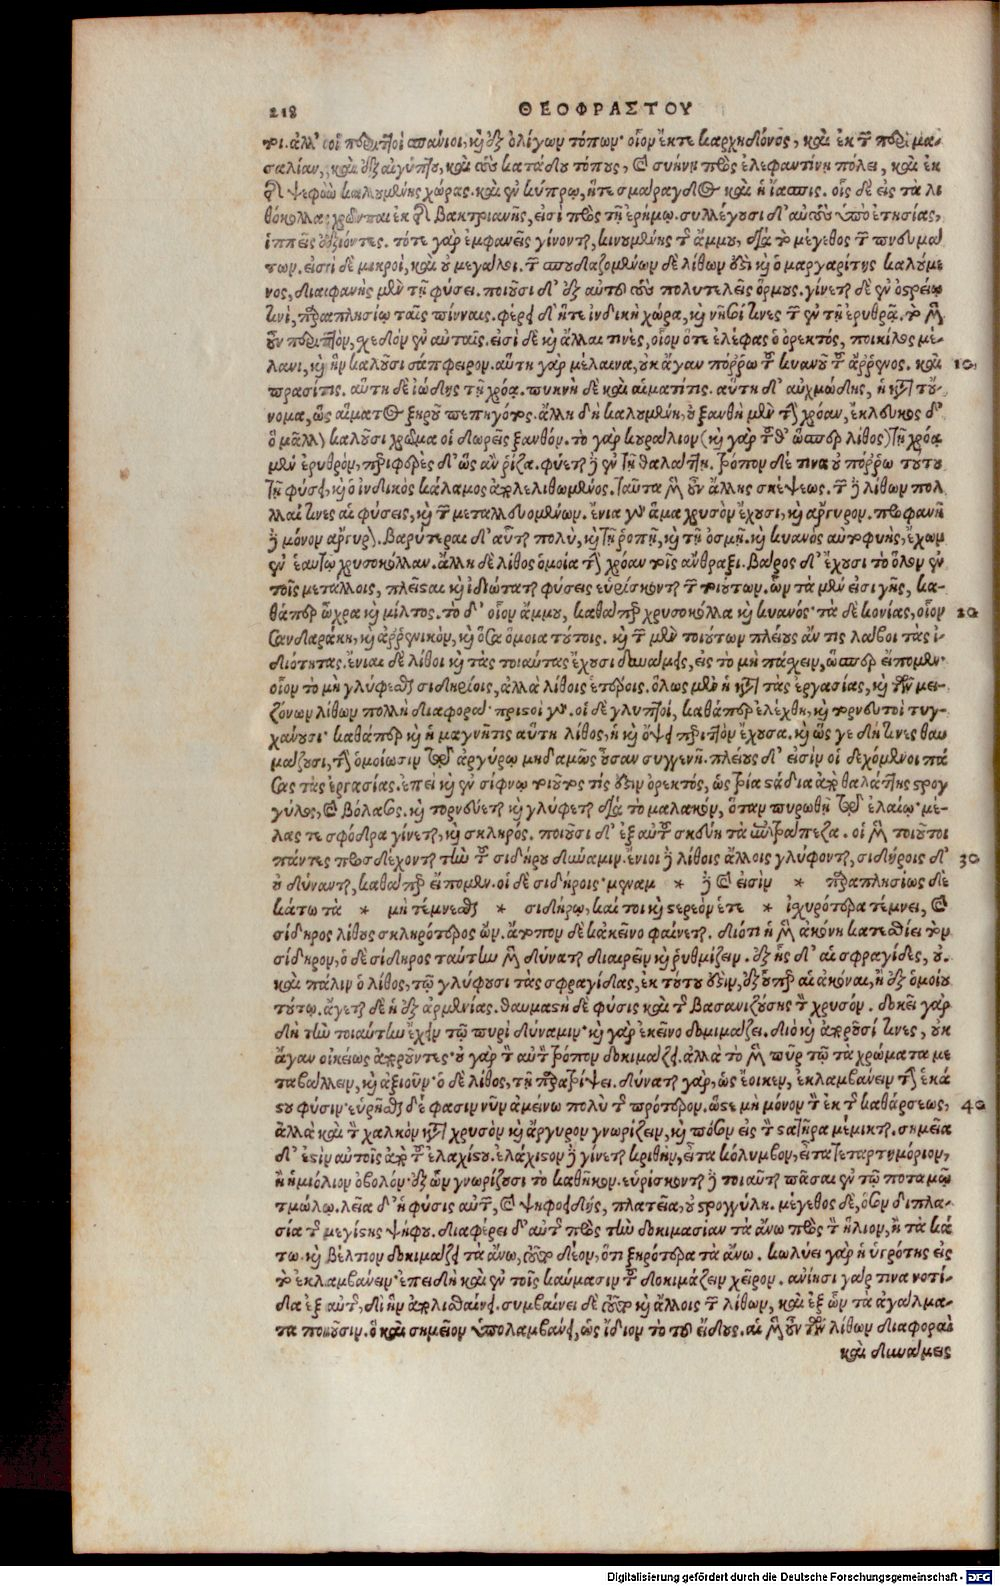 218 ΘΕΟΦΡΑΣΤΟΥ
ροι. ἀλλ' οἱ περιττοὶ σπάνιοι, καὶ ἐξ ὀλίγων τόπων· οἷον ἔκτε καρχηδόνος, καὶ ἐκ τῶν περὶ μα-
σαλίαν, καὶ ἐξ αἰγύπτου, καὶ τοὺς κατάδου τόπους, καὶ συήνη πρὸς ἐλεφαντίνη πόλει, καὶ ἐκ
τῆς ψεφὼ καλουμένης χώρας. καὶ ἐν κύπρω, ἥτε σμάραγδος καὶ ἡ ἴασπις. οἷς δὲ εἰς τὰ λι
θόκολλα χρῶνται ἐκ τῆς Βακτριανῆς, εἰσὶ πρὸς τῇ ἐρήμω. συλλέγουσι δ' αὐτοὺς ὑπὸ ἐτησίας,
ἱππεῖς ἐξιόντες. τότε γὰρ ἐμφανεῖς γίνονται, κινουμένης τῆς ἄμμου, διὰ τὸ μέγεθος τῶν πνευμά
των. εἰσὶ δὲ μικροὶ, καὶ οὐ μεγάλοι. τῶν σπουδαζομένων δὲ λίθων ἐστὶ καὶ ὁ μαργαρίτης καλούμε
νος, διαφανὴς μὲν τῇ φύσει. ποιοῦσι δ' ἐξ αὐτοῦ τοὺς πολυτελεῖς ὅρμους. γίνεται δὲ ἐν ὀστρέω
τινὶ, παραπλησίω ταῖς πίνναις. φέρει δ' ἥτε ἰνδικὴ χώρα, καὶ νῆσοί τινες τῶν ἐν τῇ ἐρυθρᾷ. τὸ μὲν
οὖν περιττὸν, σχεδὸν ἐν αὐταῖς. εἰσὶ δὲ καὶ ἄλλαι τινὲς, οἷον ὅτε ἐλέφας ὁ ὀρεκτός, ποικίλος μέ-
λανι, καὶ ἣν καλοῦσι σάπφειρον. αὕτη γὰρ μέλαινα, οὐκ ἄγαν πόρρω τοῦ κυανοῦ τοῦ ἄρρενος. καὶ 10
πρασίτις. αὕτη δὲ ἰώδης τῇ χρόα. πυκνὴ δὲ καὶ αἱματίτις. αὕτη δ' αὐχμώδης, ἡ κατὰ τοὔ-
νομα, ὡς αἵματος ξηροῦ πεπηγότος. ἄλλη δ' ἡ καλουμένη, οὐ ξανθὴ μὲν τὴν χρόαν, ἔκλευκος δ'
ὃ μᾶλλον καλοῦσι χρῶμα οἱ δωρεῖς ξανθόν. τὸ γὰρ κουράλιον (καὶ γὰρ τοῦθ' ὥσπερ λίθος) τῇ χρόα
μὲν ἐρυθρόν, περιφερὲς δ' ὡς ἂν ῥίζα. φύεται δὲ ἐν τῇ θαλάττη. τρόπον δέ τινα οὐ πόρρω τούτου
τῇ φύσει, καὶ ὁ ἰνδικὸς κάλαμος ἀπολελιθωμένος. ταῦτα μὲν οὖν ἄλλης σκέψεως. τῶν δὲ λίθων πολ
λλαί τινες αἱ φύσεις, καὶ τῶν μεταλλευομένων. ἔνια γὰρ ἅμα χρυσὸν ἔχουσι, καὶ ἄργυρον. προφανῆ
δὲ μόνον ἄργυρον. βαρύτεραι δ' αὗται πολὺ, καὶ τῇ ῥοπῇ, καὶ τῇ ὀσμῇ. καὶ κυανὸς αὐτοφυὴς, ἔχων
ἐν ἑαυτῷ χρυσοκόλλαν. ἄλλη δὲ λίθος ὁμοία τὴν χρόαν τοῖς ἄνθραξι. βάρος δ' ἔχουσι τὸ ὅλον ἐν
τοῖς μετάλλοις, πλεῖσται καὶ ἰδιώταται φύσεις εὑρίσκονται τῶν τοιούτων. ὧν τὰ μὲν εἰσι γῆς, κα-
θάπερ ὤχρα καὶ μίλτος. τὸ δ' οἷον ἄμμου, καθάπερ χρυσοκόλλα καὶ κυανός· τὰ δὲ κονίας, οἷον 20
σανδαράκη, καὶ ἀρρενικόν, καὶ ὅσα ὅμοια τούτοις. καὶ τῶν μὲν τοιούτων πλείους ἄν τις λάβοι τὰς ἰ-
διότητας. ἔνιαι δὲ λίθοι καὶ τὰς τοιαύτας ἔχουσι δυνάμεις, εἰς τὸ μὴ πάσχειν, ὥσπερ εἴπομεν·
οἷον τὸ μὴ γλύφεσθαι σιδηρίοις, ἀλλὰ λίθοις ἑτέροις. ὅλως μὲν ἡ κατὰ τὰς ἐργασίας, καὶ τῶν μει-
ζόνων λίθων πολλὴ διαφορά· πριστοὶ γάρ. οἱ δὲ γλυπτοί, καθάπερ ἐλέχθη, καὶ τορνευτοὶ τυγ-
χάνουσι· καθάπερ καὶ ἡ μαγνῆτις αὕτη λίθος, ἡ καὶ ὄψει περιττὸν ἔχουσα. καὶ ὥς γε δή τινες θαυ
μάζουσι, τὴν ὁμοίωσιν τῷ ἀργύρω μηδαμῶς οὖσαν συγγενῆ. πλείους δ' εἰσὶν οἱ δεχόμενοι πά
σας τὰς ἐργασίας. ἐπεὶ καὶ ἐν σίφνω τοιοῦτός τίς ἐστιν ὀρεκτός, ὡς τρία στάδια ἀπὸ θαλάττης στρογ
γύλος, καὶ βόλαβος. καὶ τορνεύεται καὶ γλύφεται διὰ τὸ μαλακόν, ὅταν πυρωθῇ τῷ ἐλαίω· μέ-
λας τε σφόδρα γίνεται, καὶ σκληρός. ποιοῦσι δ' ἐξ αὐτοῦ σκεύη τὰ ἐπιτράπεζα. οἱ μὲν τοιοῦτοι
πάντες προσδέχονται τὴν τοῦ σιδήρου δύναμιν. ἔνιοι δὲ λίθοις ἄλλοις γλύφονται, σιδήροις δ' 30
οὐ δύνανται, καθάπερ εἴπομεν. οἱ δὲ σιδήροις· μεναμ * δὲ καὶ εἰσὶν * παραπλησίως δὲ
κάτω τὰ * μὴ τέμνεσθαι * σιδήρω, καί τοι καὶ στερεὸν ἔτε * ἰσχυρότερα τέμνει, καὶ
σίδηρος λίθους σκληρότερος ὤν. ἄτοπον δὲ κἀκεῖνο φαίνεται. διότι ἡ μὲν ἀκόνη κατεσθίει τὸν
σίδηρον, ὁ δὲ σίδηρος ταύτην μὲν δύναται διαιρεῖν καὶ ῥυθμίζειν. ἐξ ἧς δ' αἱ σφραγίδες, οὐ.
καὶ πάλιν ὁ λίθος, τῷ γλύφουσι τὰς σφραγίδας, ἐκ τούτου ἐστὶν, ἐξ οὗπερ αἱ ἀκόναι, ἢ ἐξ ὁμοίου
τούτω. ἄγεται δὲ ἡ ἐξ ἀρμενίας. θαυμαστὴ δὲ φύσις καὶ τῆς βασανιζούσης τὸν χρυσόν. δοκεῖ γὰρ
δὴ τὴν τοιαύτην ἔχειν τῷ πυρὶ δύναμιν· καὶ γὰρ ἐκεῖνο δοκιμάζει. διὸ καὶ ἀποροῦσί τινες, οὐκ
ἄγαν οἰκείως ἀποροῦντες· οὐ γὰρ τὸν αὐτὸν τρόπον δοκιμάζει. ἀλλὰ τὸ μὲν πῦρ τῷ τὰ χρώματα με
ταβάλλειν, καὶ ἀξιοῦν· ὁ δὲ λίθος, τῇ παρατρίψει. δύναται γὰρ, ὡς ἔοικεν, ἐκλαμβάνειν τὴν ἑκά
στου φύσιν· εὑρῆσθαι δέ φασιν νῦν ἀμείνω πολὺ τῆς πρότερον. ὥστε μὴ μόνον τὸν ἐκ τῆς καθάρσεως, 40
ἀλλὰ καὶ τὸν χαλκὸν κατὰ χρυσὸν καὶ ἄργυρον γνωρίζειν, καὶ πόσον εἰς τὸν στατῆρα μέμικται. σημεῖα
δ' ἐστὶν αὐτοῖς ἀπὸ τοῦ ἐλαχίστου. ἐλάχιστον δὲ γίνεται κριθήν, εἶτα κόλυμβον, εἶτα τεταρτημόριον,
ἢ ἡμιόλιον ὀβολόν· ἐξ ὧν γνωρίζουσι τὸ καθῆκον. εὑρίσκονται δὲ τοιαῦται πᾶσαι ἐν τῷ ποταμῷ
τμώλω. λεῖα δ' ἡ φύσις αὐτῶν, καὶ ψηφοειδὴς, πλατεῖα, οὐ στρογγύλη. μέγεθος δὲ, ὅσον διπλα-
σία τῆς μεγίστης ψήφου. διαφέρει δ' αὐτῆς πρὸς τὴν δοκιμασίαν τὰ ἄνω πρὸς τὸν ἥλιον, ἢ τὰ κά
τω. καὶ βέλτιον δοκιμάζει τὰ ἄνω, τοῦτο δέον, ὅτι ξηρότερα τὰ ἄνω. κωλύει γὰρ ἡ ὑγρότης εἰς
τὸ ἐκλαμβάνειν· ἐπειδὴ καὶ ἐν τοῖς καύμασιν τοῦ δοκιμάζειν χεῖρον. ἀνίησι γάρ τινα νοτί-
δα ἐξ αὐτῆς, δι' ἣν ἀπολισθαίνει. συμβαίνει δὲ τοῦτο καὶ ἄλλοις τῶν λίθων, καὶ ἐξ ὧν τὰ ἀγάλμα-
τα ποιοῦσιν. ὃ καὶ σημεῖον ὑπολαμβάνει, ὡς ἴδιον τὸ τοῦ εἴδους. αἱ μὲν οὖν τῶν λίθων διαφοραὶ
καὶ δυνάμεις
Digitalisierung gefördert durch die Deutsche Forschungsgemeinschaft - DFG